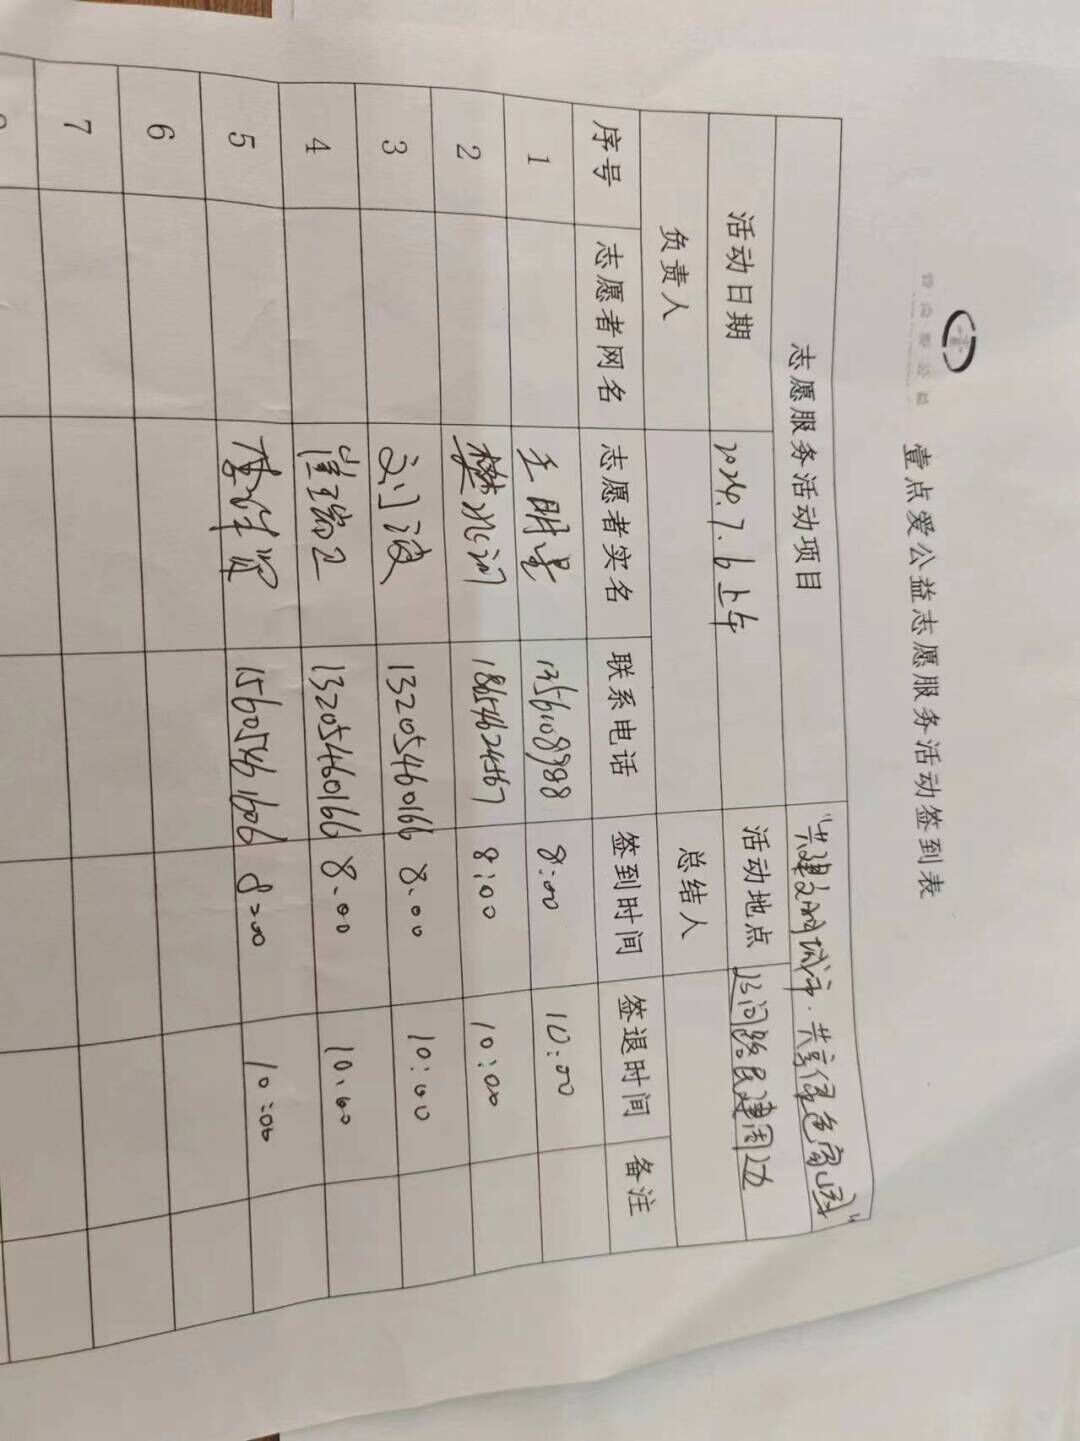 壹点爱公益志愿服务活动签到表
志愿服务活动项目 "共建文明城市·共享绿色家园"
活动日期 2024.7.6上午 活动地点
负责人 总结人
序号 志愿者网名 志愿者实名 联系电话 签到时间 签退时间 备注
1 王明星 13561089988 8:00 10:00
2 樊 18654624567 8:00 10:00
3 刘门波 13205460166 8.00 10:00
4 崔瑞卫 13205460166 8.00 10.00
5 15605461606 8:00 10:00
6
7